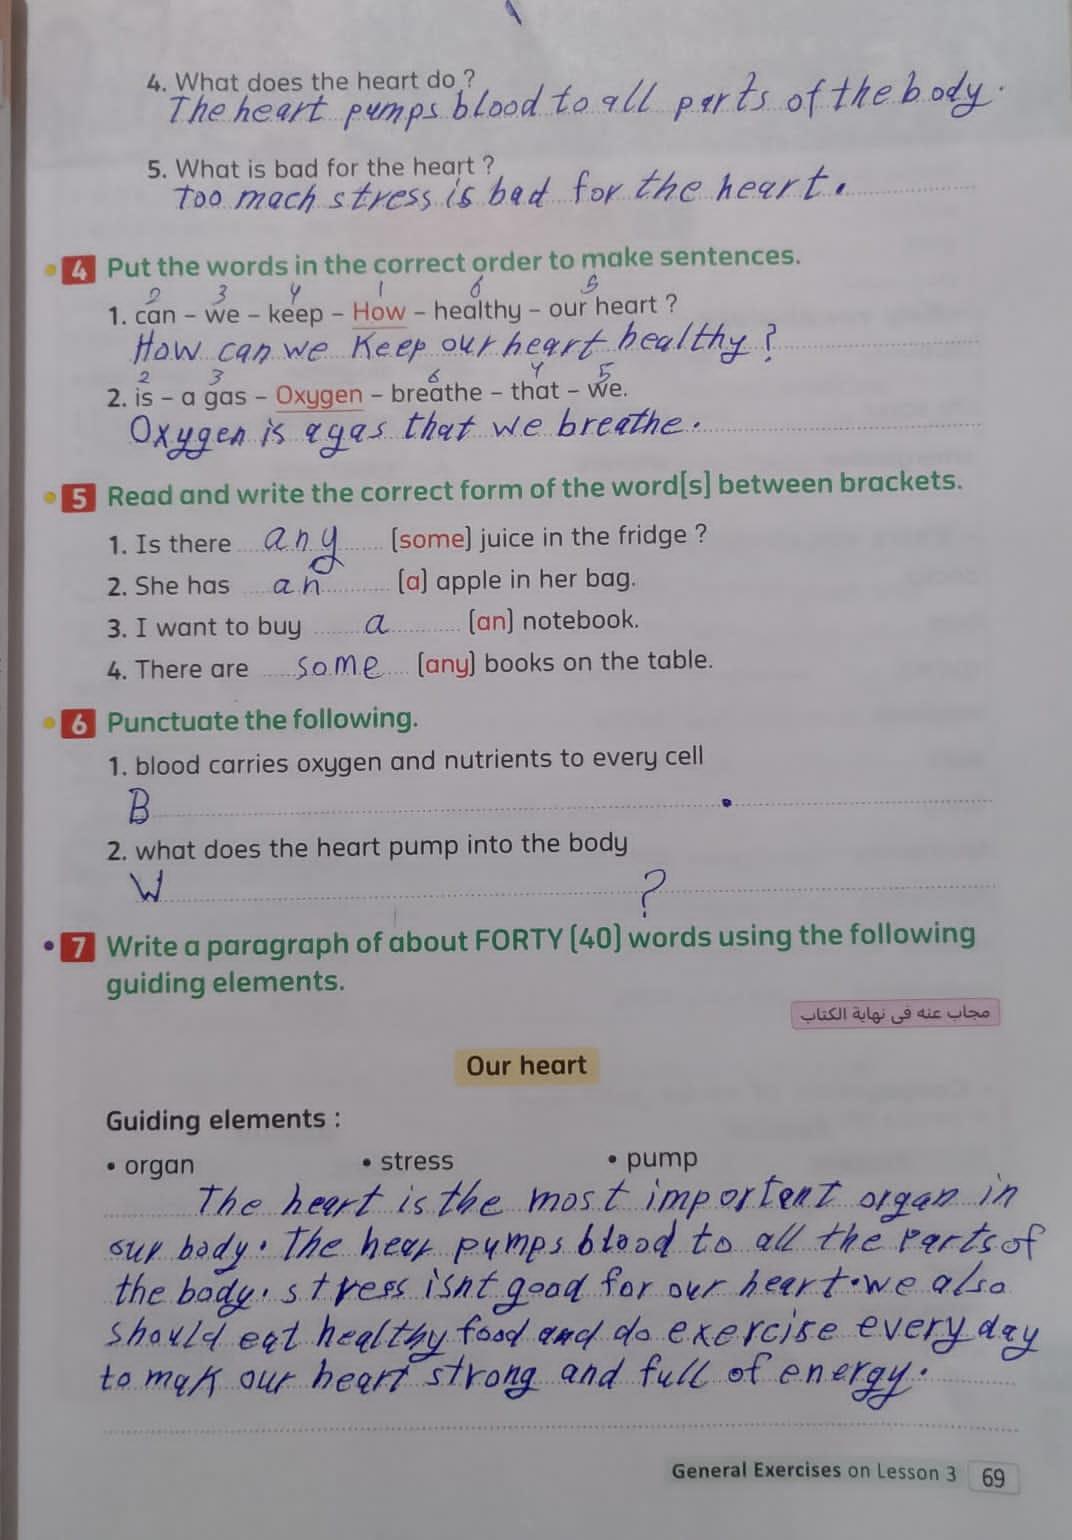 4. What does the heart do ?
The heart pumps blood to all parts of the body.
5. What is bad for the heart ?
Too mach stress is bad for the heart.
4 Put the words in the correct order to make sentences.
2 3 4 1 6 5
1. can – we – keep – How – healthy – our heart ?
How can we Keep our heart healthy ?
2 3 6 4 5
2. is – a gas – Oxygen – breathe – that – we.
Oxygen is a gas that we breathe.
5 Read and write the correct form of the word[s] between brackets.
1. Is there any [some] juice in the fridge ?
2. She has an [a] apple in her bag.
3. I want to buy a [an] notebook.
4. There are some [any] books on the table.
6 Punctuate the following.
1. blood carries oxygen and nutrients to every cell
B .
2. what does the heart pump into the body
W ?
7 Write a paragraph of about FORTY [40] words using the following
guiding elements.
مجاب عنه فى نهاية الكتاب
Our heart
Guiding elements :
• organ • stress • pump
The heart is the most important organ in
our body. The hear pumps blood to all the parts of
the body. stress isnt good for our heart. we also
should eat healthy food and do exercise every day
to mak our heart strong and full of energy.
General Exercises on Lesson 3 69